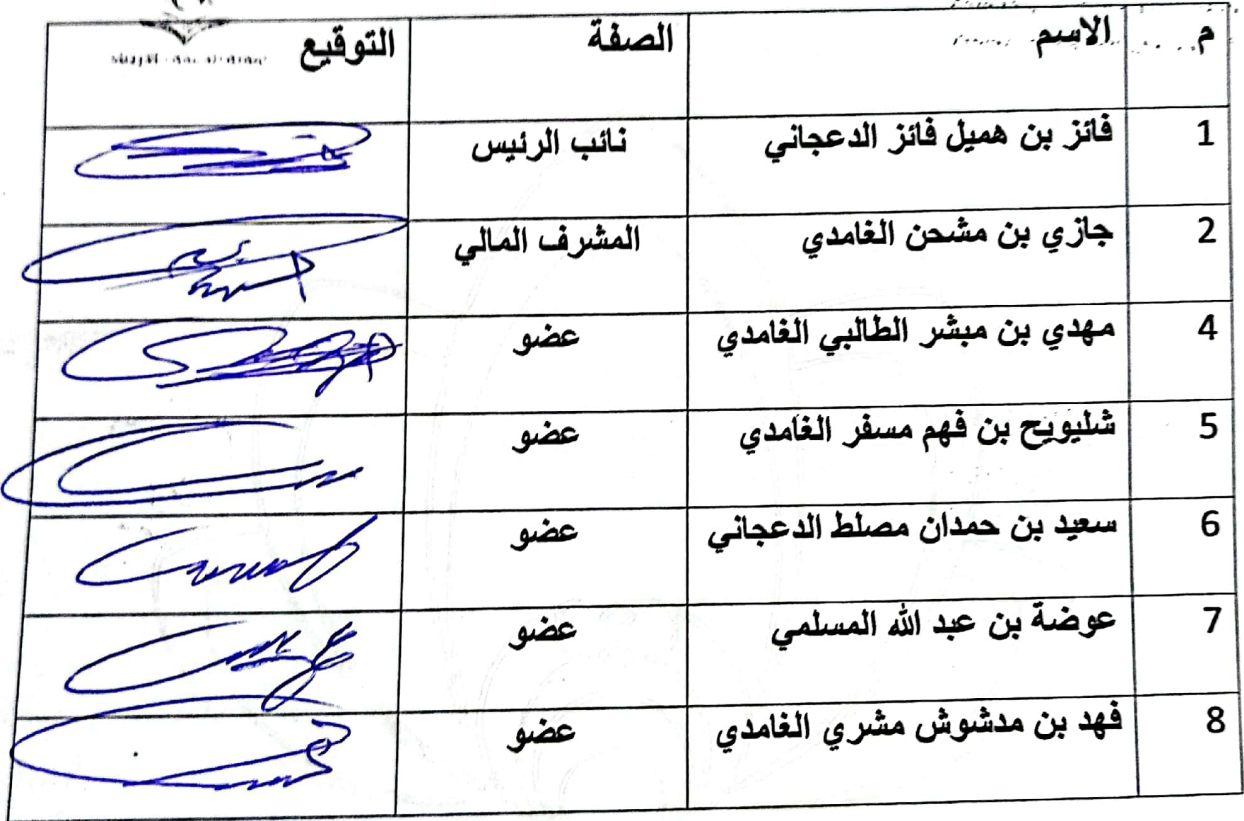 م الاسم الصفة التوقيع
1 فائز بن هميل فائز الدعجاني نائب الرئيس
2 جازي بن مشحن الغامدي المشرف المالي
4 مهدي بن مبشر الطالبي الغامدي عضو
5 شليويح بن فهم مسفر الغامدي عضو
6 سعيد بن حمدان مصلط الدعجاني عضو
7 عوضة بن عبد الله المسلمي عضو
8 فهد بن مدشوش مشري الغامدي عضو